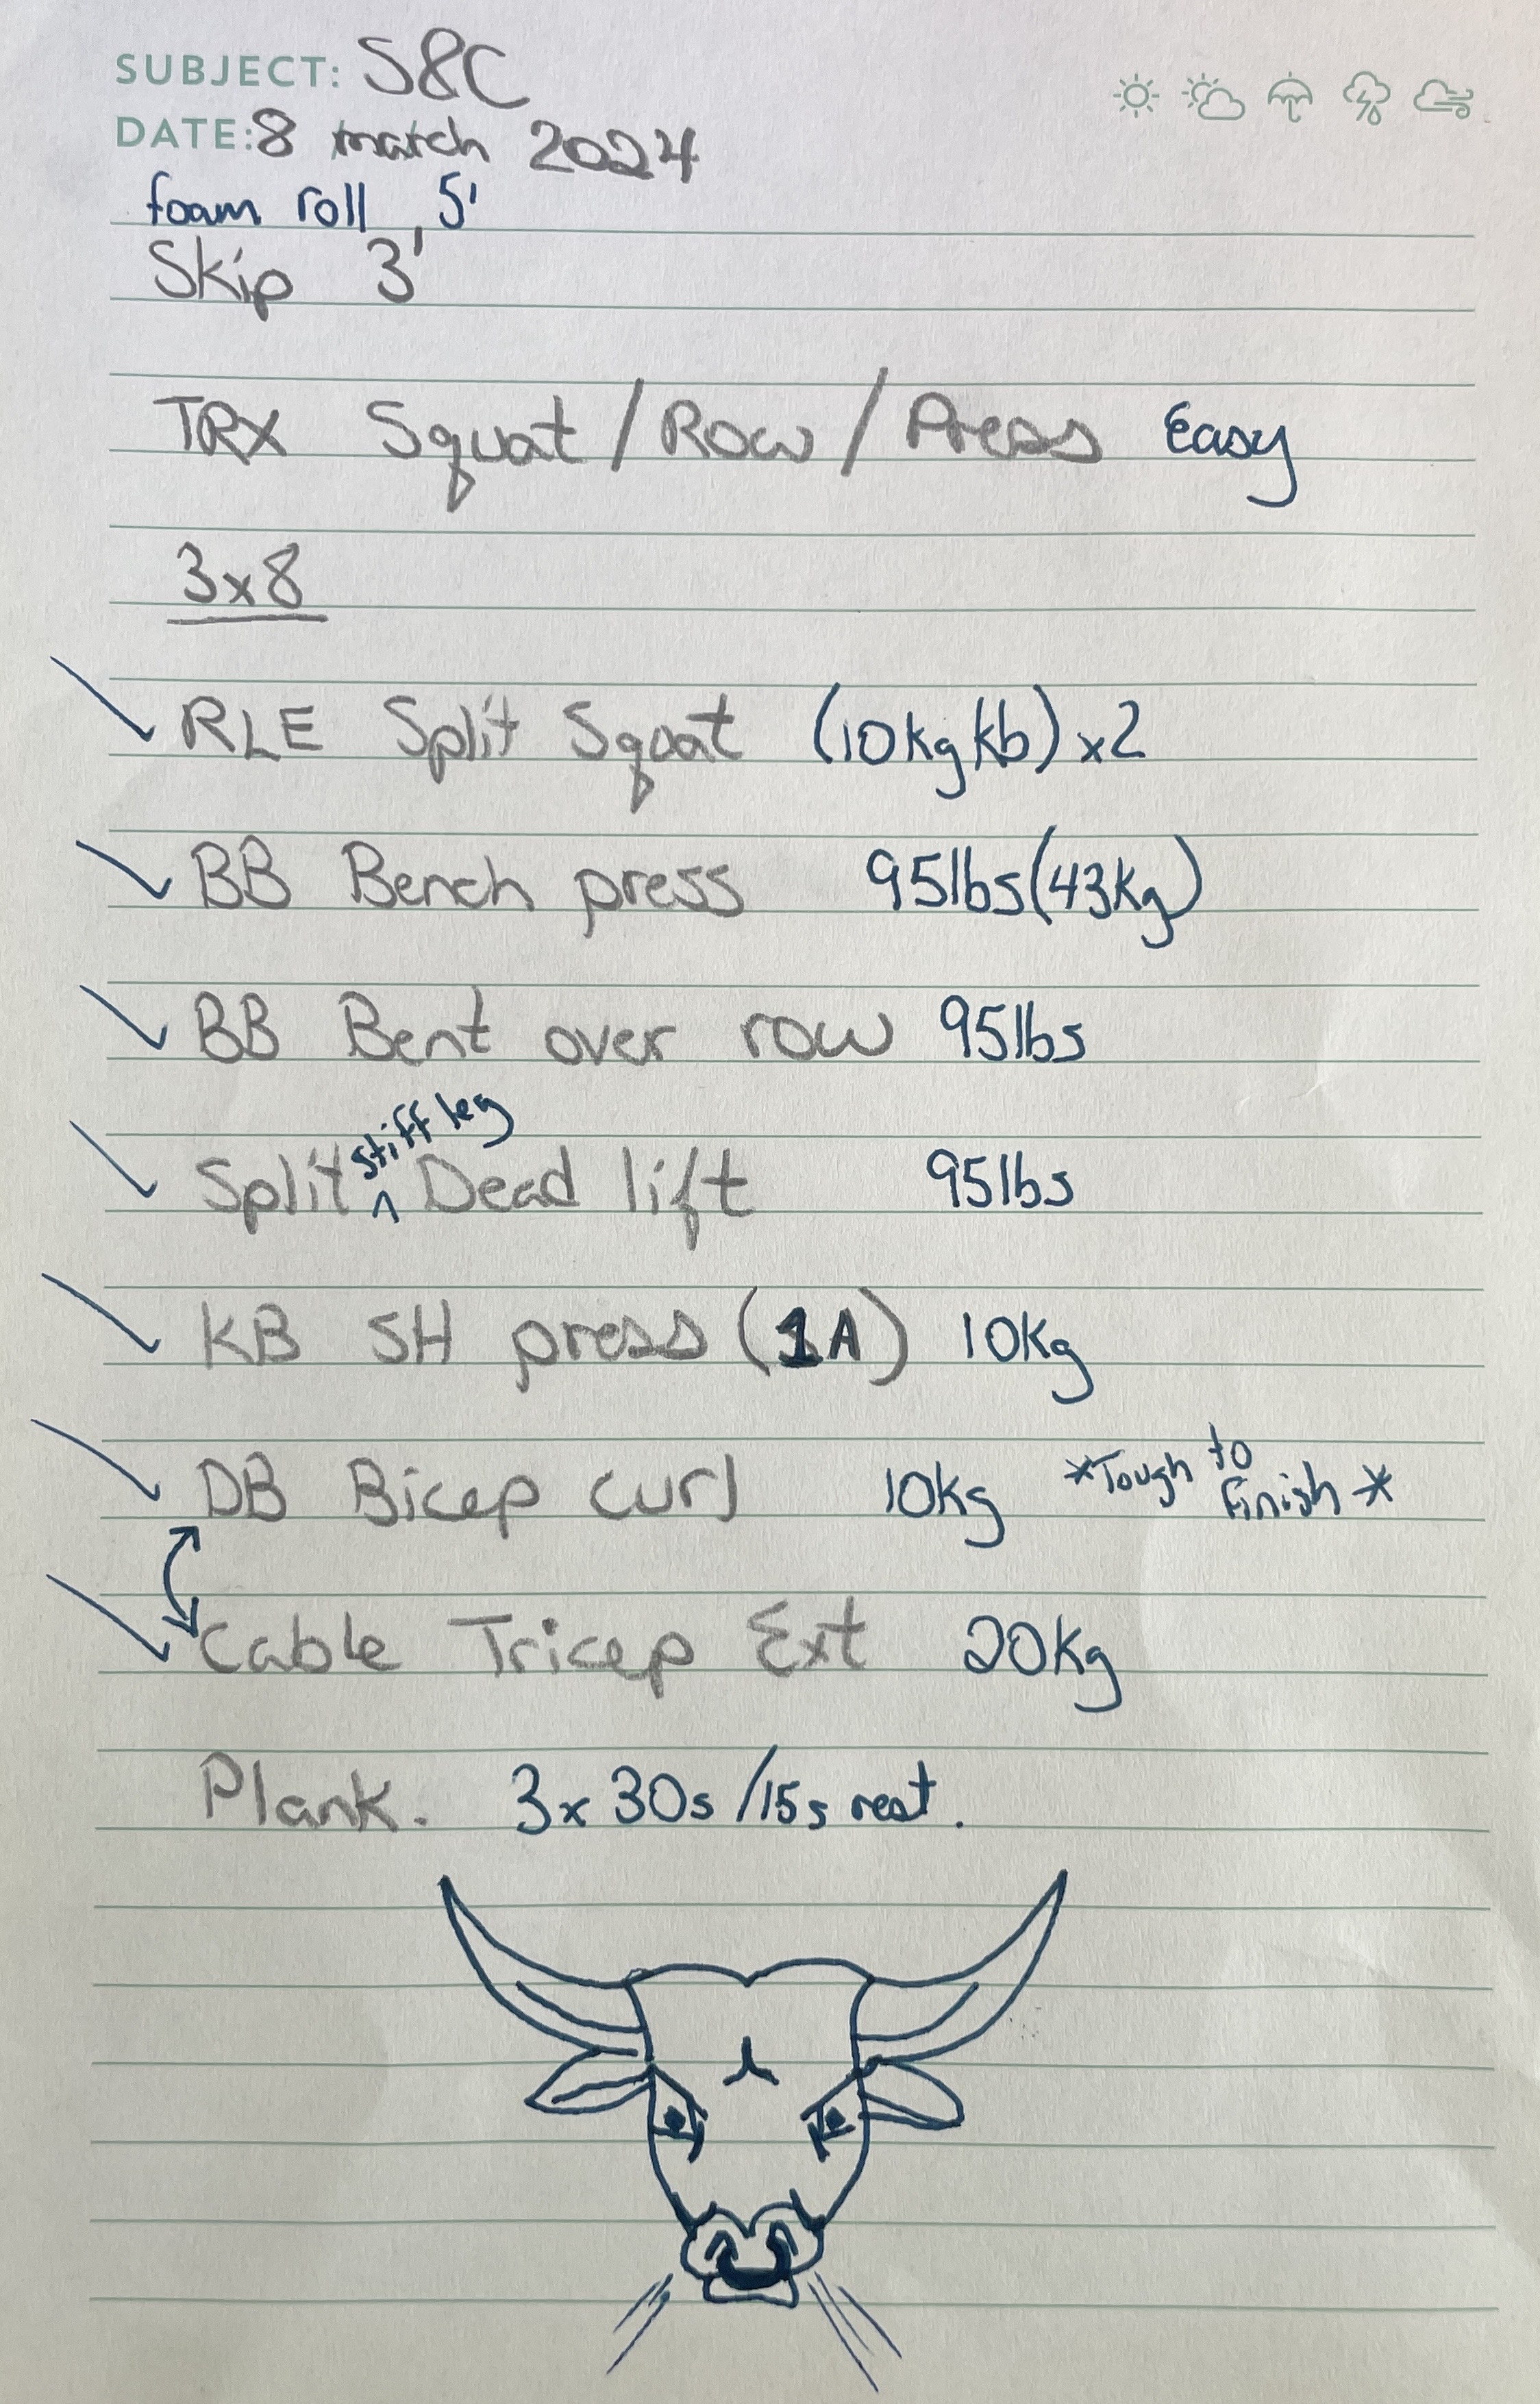 SUBJECT: S&C
DATE: 8 march 2024
foam roll 5'
Skip 3'
TRX Squat / Row / Press Easy
3x8
RLE Split Squat (10kg kb) x2
BB Bench press 95lbs (43kg)
BB Bent over row 95lbs
Split ^ stiff leg Dead lift 95lbs
KB SH press (1A) 10kg
DB Bicep curl 10kg *Tough to finish*
Cable Tricep Ext 20kg
Plank. 3x 30s /15s rest.